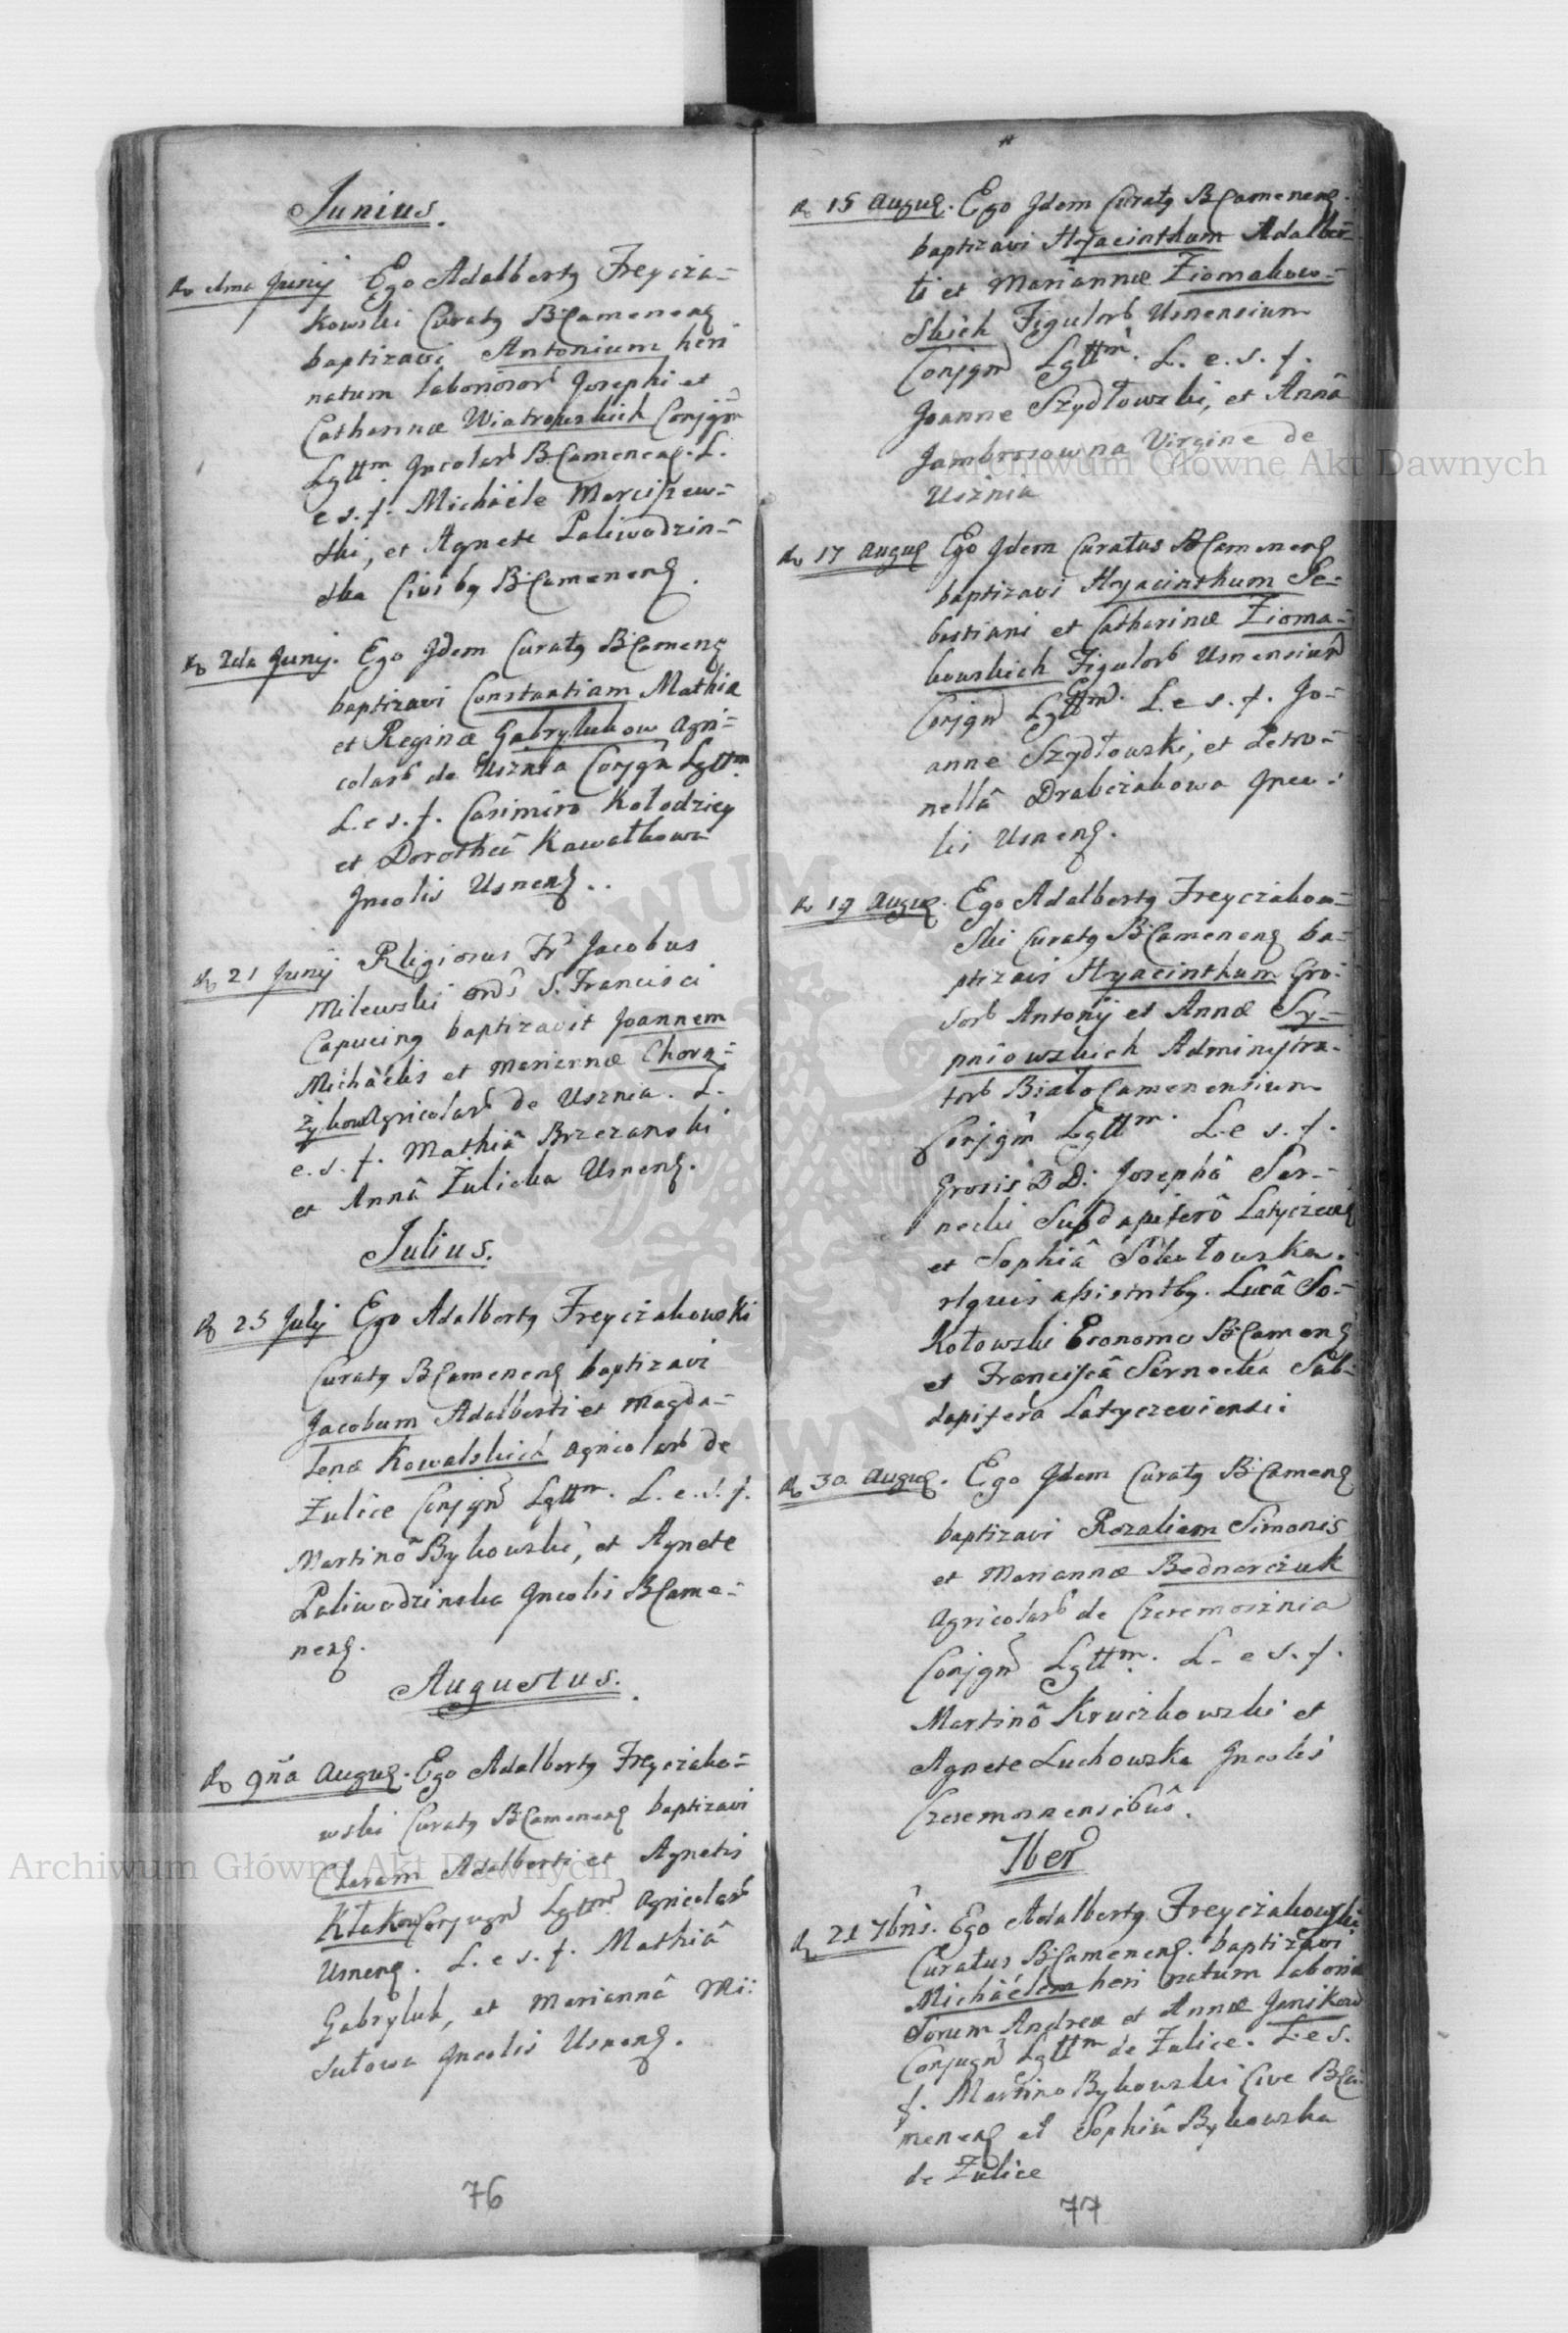 Junius.
Ao 1ma Junij Ego Adalbertq Freycza=
kowski Curatq BCamenens
baptizavi Antonium heri
natum laboriosor Josephi et
Catharinæ Wiatrowskich Conjgm
Lgttm. Incolar BCamenens. L.
e s. f. Michäele Marciszew=
ski, et Agnete Paliwodzin=
ska Civibq BCamenens.
Ao 2da Junij. Ego Idem Curatq BCamens
baptizavi Constantiam Mathiæ
et Reginæ Gabrylukow Agri=
colar de Usznia Conjgm Lgttm.
L. e s. f. Casimiro Kołodziey
et Dorotheâ Kawałkowa
Incolis Usnens..
Ao 21 Junij Religiosus Fr Jacobus
Milewski ordis S. Francisci
Capucinq baptizavit Joannem
Michäelis et Mariannæ Chorą=
żykow Agricolar de Usznia. L.
e. s. f. Mathiâ Brzezanski
et Annâ Żulicka Usnens.
Julius.
Ao 25 Julij Ego Adalbertq Freyczakowski
Curatq BCamenens baptizavi
Jacobum Adalberti et Magda=
lenæ Kowalskich agricolar de
Żulice Conjgm Lgttm. L. e. s. f.
Martinô Bykowski, et Agnete
Paliwodzinska Incolis BCame=
nens.
Augustus.
Ao 9na Augus. Ego Adalbertq Freyczako=
wski Curatq BCamenens baptizavi
Claram Adalberti et Agnetis
Kłakow Conjugm Lgttm. Agricolar
Usnens. L. e s. f. Mathiâ
Gabryluk, et Mariannâ Mi=
sułowa Incolis Usnens.
76
Ao 15 Augus. Ego Idem Curatq BCamenens.
baptizavi Hyacinthum Adalber=
ti et Mariannæ Ziomakow=
skich Figulor Usnensium
Conjgm Lgttm. L. e. s. f.
Joanne Szydłowski, et Annâ
Jambrosowna Virgine de
Usznia
Ao 17 Augus Ego Idem Curatus BCamenens
baptizavi Hyacinthum Se=
bastiani et Catharinæ Zioma=
kowskich Figulor Usnensium
Conjgm Lgttm. L. e s. f. Jo=
anne Szydłowski, et Petro=
nellâ Drabczakowa Inco=
lis Usnens.
Ao 19 Augus. Ego Adalbertq Freyczakow=
ski Curatq BCamenens ba=
ptizavi Hyacinthum Gro=
sor Antonij et Annæ Sy=
pniowskich Administra=
tor BiałoCamenensium
Conjgm Lgttm. L. e s. f.
Grosis D D: Josephô Ser=
necki Subdapiferô Latyczews
et Sophiâ Sokołowska.
rlquis assistntbq. Lucâ So=
kołowski Economo BCamens
et Franciscâ Sernecka Sub=
dapifera Latyczeviensi.
Ao 30. Augus. Ego Idem Curatq BCamens
baptizavi Rozaliam Simonis
et Mariannæ Bednarczuk
Agricolar de Czeremosznia
Conjgm Lgttm. L. e s. f.
Martinô Kruczkowski et
Agnete Luchowska Incolis
Czeremosnensibus.
7ber
Ao 21 7bris. Ego Adalbertq Freyczakowski
Curatus BCamenens. baptizavi
Michäelem heri natum laborio
sorum Andreæ et Annæ Janikow
Conjugm Lgttm de Żulice. L. e s.
f. Martino Bykowski Cive BCa=
menens et Sophiâ Bykowska
de Żulice
77
Archiwum Główne Akt Dawnych
Archiwum Główne Akt Dawnych